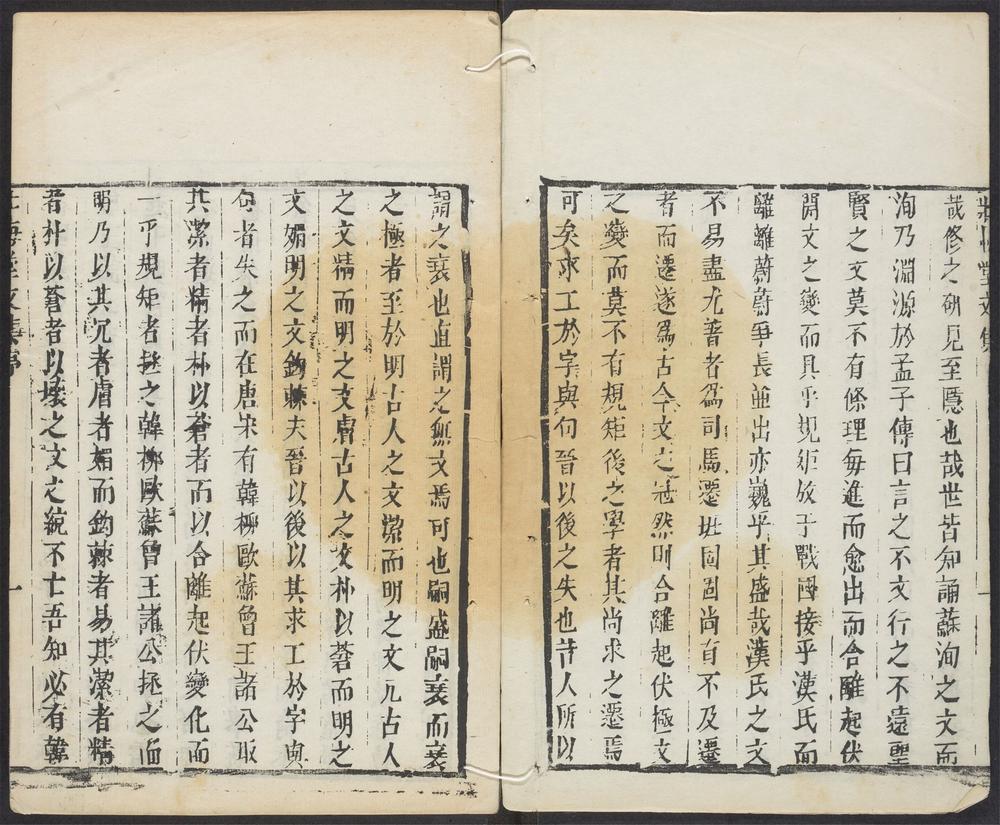 哉修之研見至隱也哉世皆知誦蘇洵之文而
洵乃淵源於孟子傳曰言之不文行之不遠聖
賢之文莫不有條理每進而愈出而合離起伏
開文之變而具乎規矩放于戰國接乎漢氏而
離離蔚蔚爭長並出亦巍乎其盛哉漢氏之文
不易盡尤著者為司馬遷班固固尚有不及遷
者而遷遂為古今文之冠然則合離起伏極文
之變而莫不有規矩後之學者其尚求之遷焉
可矣求工於字與句晉以後之失也昔人所以
謂之衰也直謂之無文焉可也嗣盛嗣衰而衰
之極者至於明古人之文潔而明之文冗古人
之文精而明之文膚古人之文朴以蒼而明之
文媚明之文鉤棘夫晉以後以其求工於字與
句者失之而在唐宋有韓柳歐蘇曾王諸公取
其潔者精者朴以蒼者而以合離起伏變化而
一乎規矩者拯之韓柳歐蘇曾王諸公拯之而
明乃以其冗者膚者媚而鉤棘者易其潔者精
者朴以蒼者以壞之文之統不亡吾知必有韓
堂文集序
一